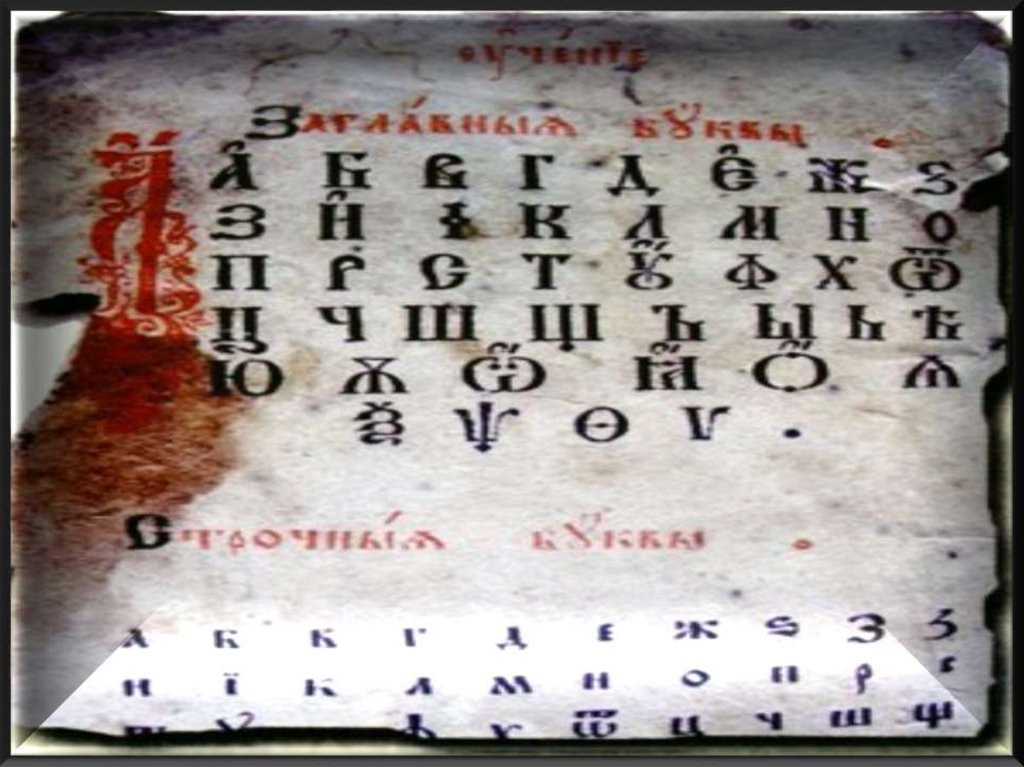 оуче́нїе
Загла́вныѧ бꙋ́квы .
А Б В Г Д Є Ж Ѕ
З И І К Л М Н О
П Р С Т Ꙋ Ф Х Ѿ
Ц Ч Ш Щ Ъ Ы Ь Ѣ
Ю Ѫ Ѽ Ꙗ Ѻ Ѧ
Ѯ Ѱ Ѳ Ѵ .
Строчны́ѧ бꙋ́квы .
а б в г д е ж ѕ З з
и ї к л м н о п р с
ф х ѿ ц ч ш щ